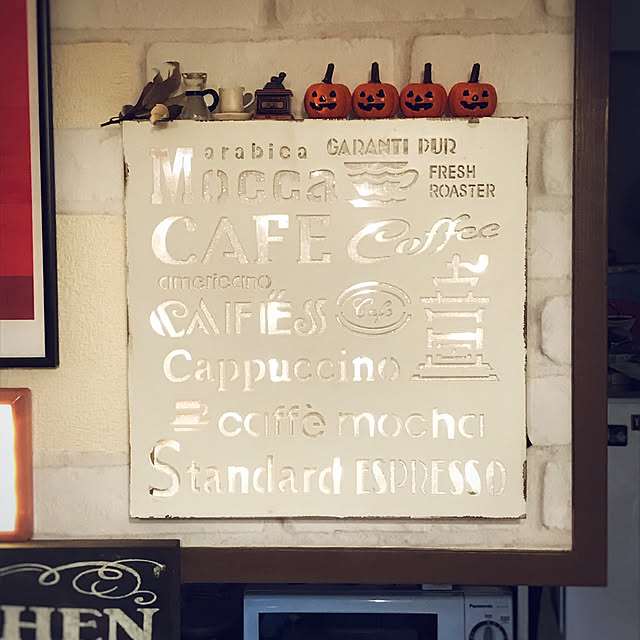 arabica GARANTI PUR
Mocca FRESH
ROASTER
CAFE Coffee
americano
CAIFĒSS Café
Cappuccino
caffè mocha
Standard ESPRESSO
HEN
Panasonic